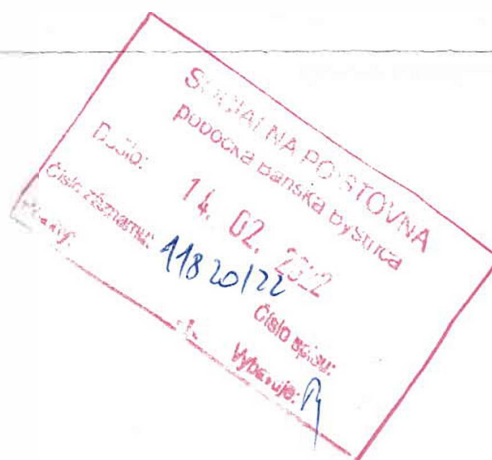 SOCIÁLNA POISŤOVŇA
pobočka Banská Bystrica
Došlo:
14. 02. 2022
Číslo záznamu: 11820/22
Číslo spisu:
Vybavuje: